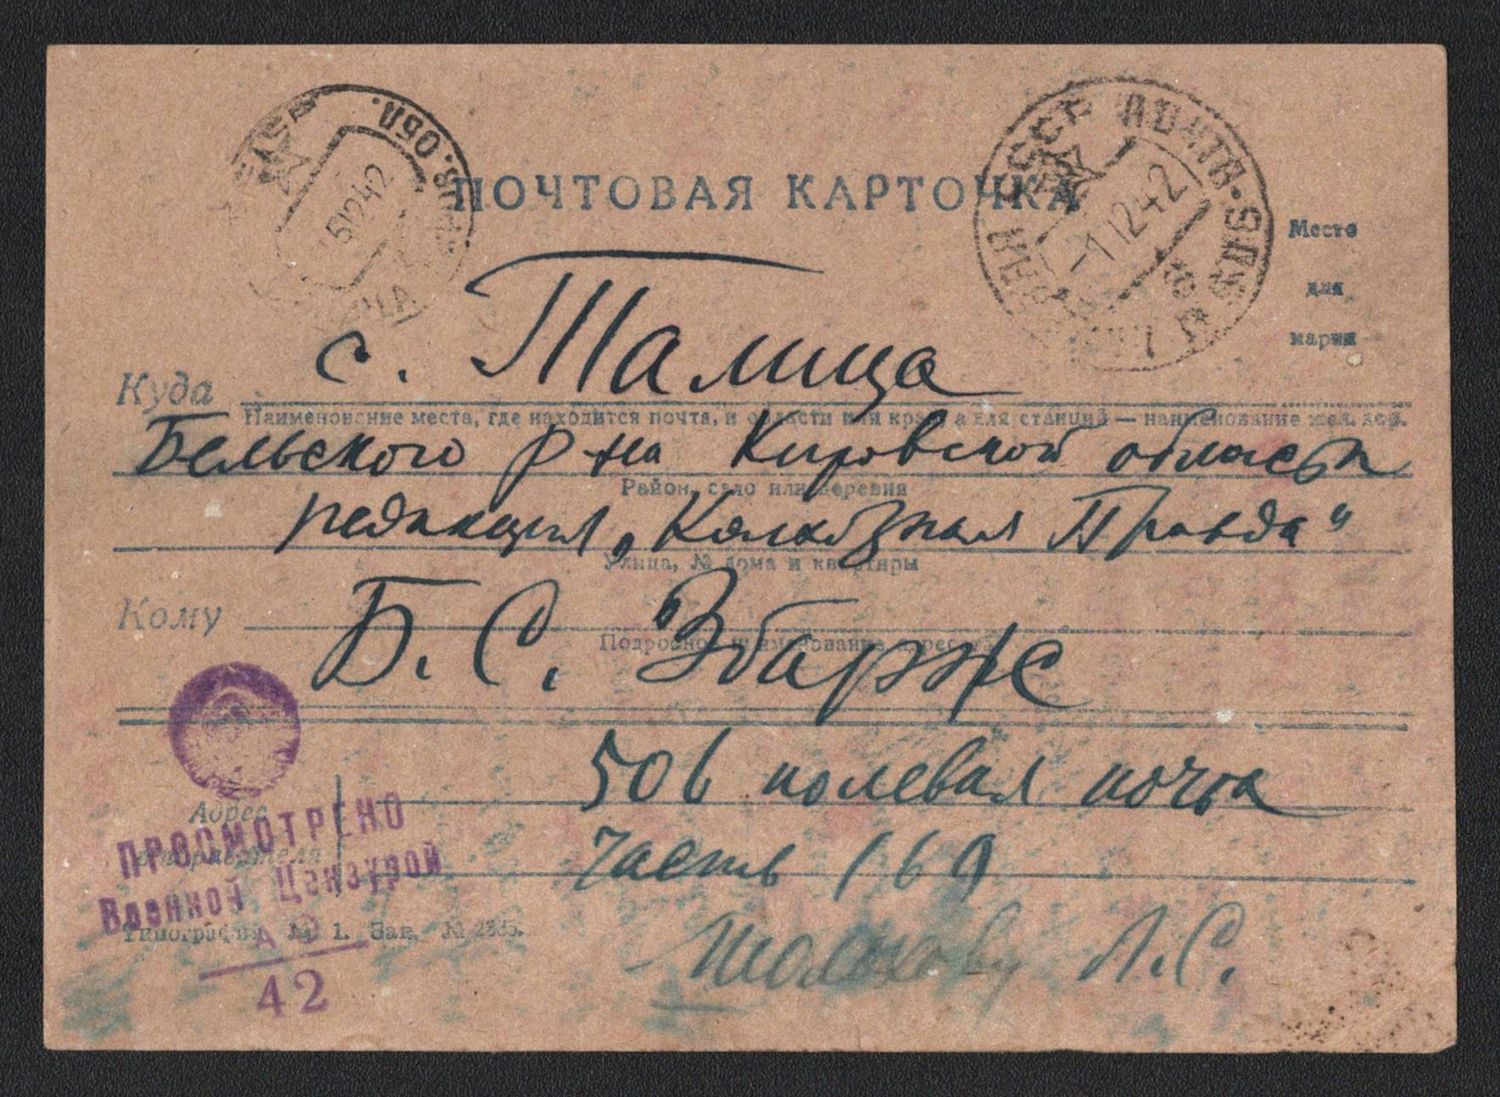 ПОЧТОВАЯ КАРТОЧКА
5 12 42
-1 12 42
Место
для
марки
Куда с. Талица
Наименование места, где находится почта, и области или края, а для станций — наименование жел. дор.
Бельского р-на Кировской области
Район, село или деревня
редакция „Колхозная Правда“
Улица, № дома и квартиры
Кому Б. С. Збарже
Подробное наименование адресата
506 полевая почта
Адрес
отправителя
часть 169
Л. С.
ПРОСМОТРЕНО
Военной Цензурой
42
Типография № 1. Зак. №